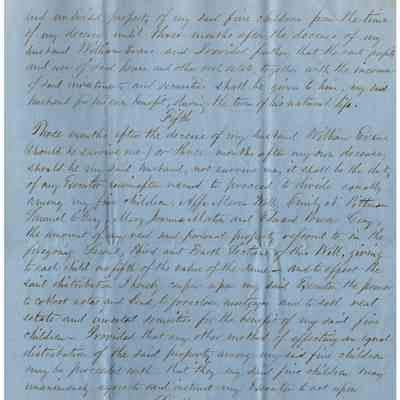 and undivided property of my said five children from the time
of my decease until three months after the decease of my
husband William Evans and Provided further that the rents profits
and use of said house and other real estate together with the income
of said investments and securities shall be given to him, my said
husband for his own benefit, during the term of his natural life.
Fifth
Three months after the decease of my husband William Evans
(should he survive me) or three months after my own decease,
should he my said husband, not survive me, it shall be the duty
of my Executor hereinafter named to proceed to divide equally
among my five children,
Samuel Mary and Edward Evans Gray
the amount of my real and personal property referred to in the
foregoing Second, Third and Fourth Sections of this Will, giving
to each child one fifth of the value of the same and to effect the
said distribution I hereby confer upon my said Executor the power
to collect notes and bonds, to foreclose mortgages and to sell real
estate and invested securities for the benefit of my said five
children Provided that any other method of effecting an equal
distribution of the said property among my said five children
may be proceeded with that they my said five children may
unanimously agree to and instruct my Executor to act upon